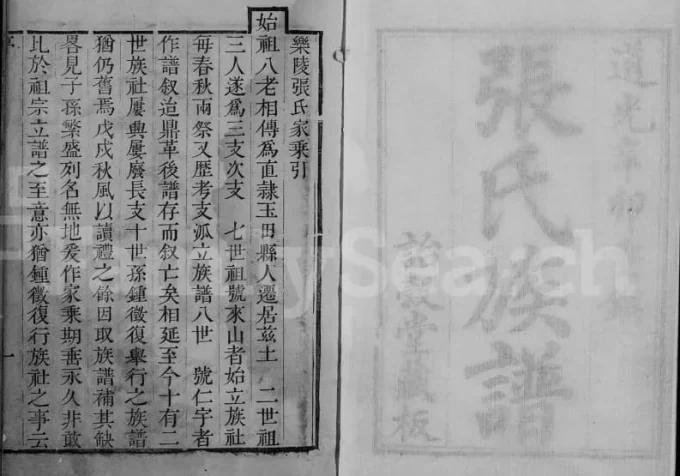 張氏族譜
藏板
樂陵張氏家乘引
始祖八老相傳為直隸玉田縣人遷居茲土　二世祖
三人遂為三支次支　七世祖號來山者始立族社
每春秋兩祭又歷考支派立族譜八世　號仁宇者
作譜叙迨鼎革後譜存而叙亡矣相延至今十有二
世族社屢興屢廢長支十世孫鍾徵復舉行之族譜
猶仍舊焉戊戌秋風以讀禮之餘因取族譜補其缺
畧見子孫繁盛列名無地爰作家乘期垂永久非敢
比於祖宗立譜之至意亦猶鍾徵復行族社之事云
一
FamilySearch